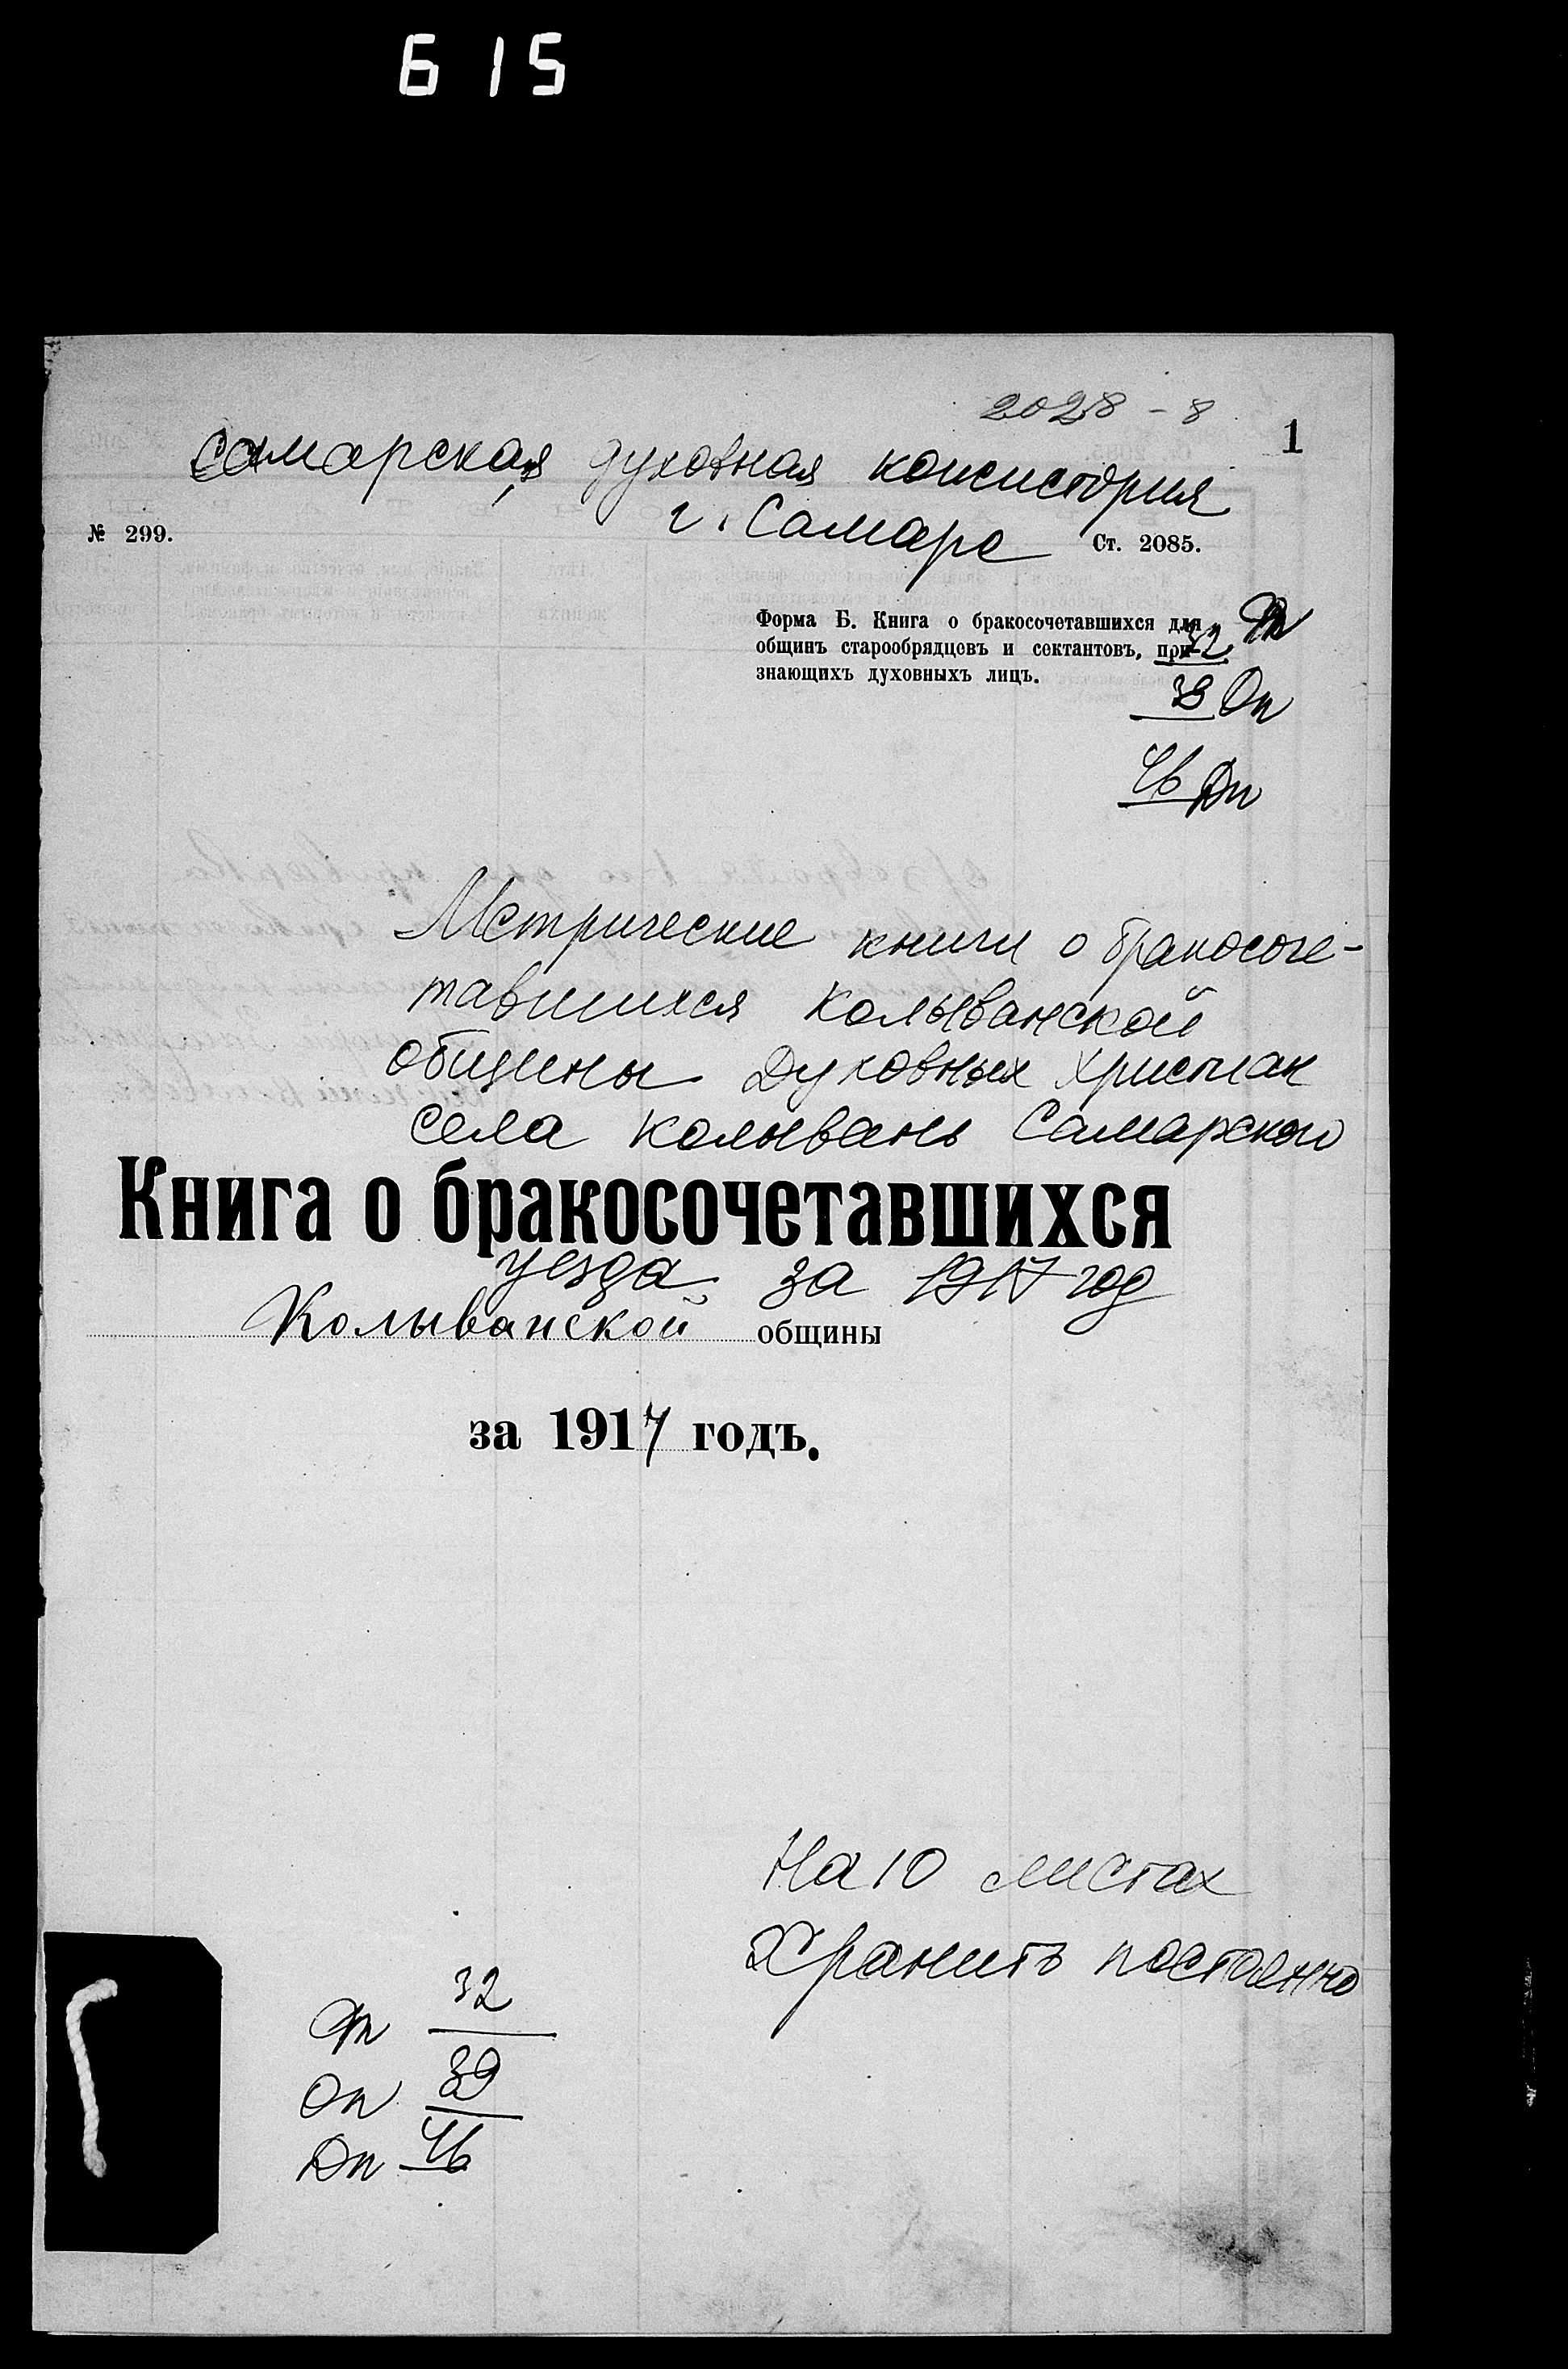 615
2028 - 8
1
Самарская духовная консистория
г. Самара
№ 299.
Ст. 2085.
Форма Б. Книга о бракосочетавшихся для
общинъ старообрядцевъ и сектантовъ, при-
знающихъ духовныхъ лицъ.
32 Фп
39 Оп
46 Дп
Метрические книги о бракосоче-
тавшихся Колыванской
общины Духовных Христиан
села Колывань Самарского
Книга о бракосочетавшихся
уезда за 1917 год
Колыванской общины
за 1917 годъ.
На 10 листах
Хранить постоянно
Фп 32
Оп 39
Дп 46